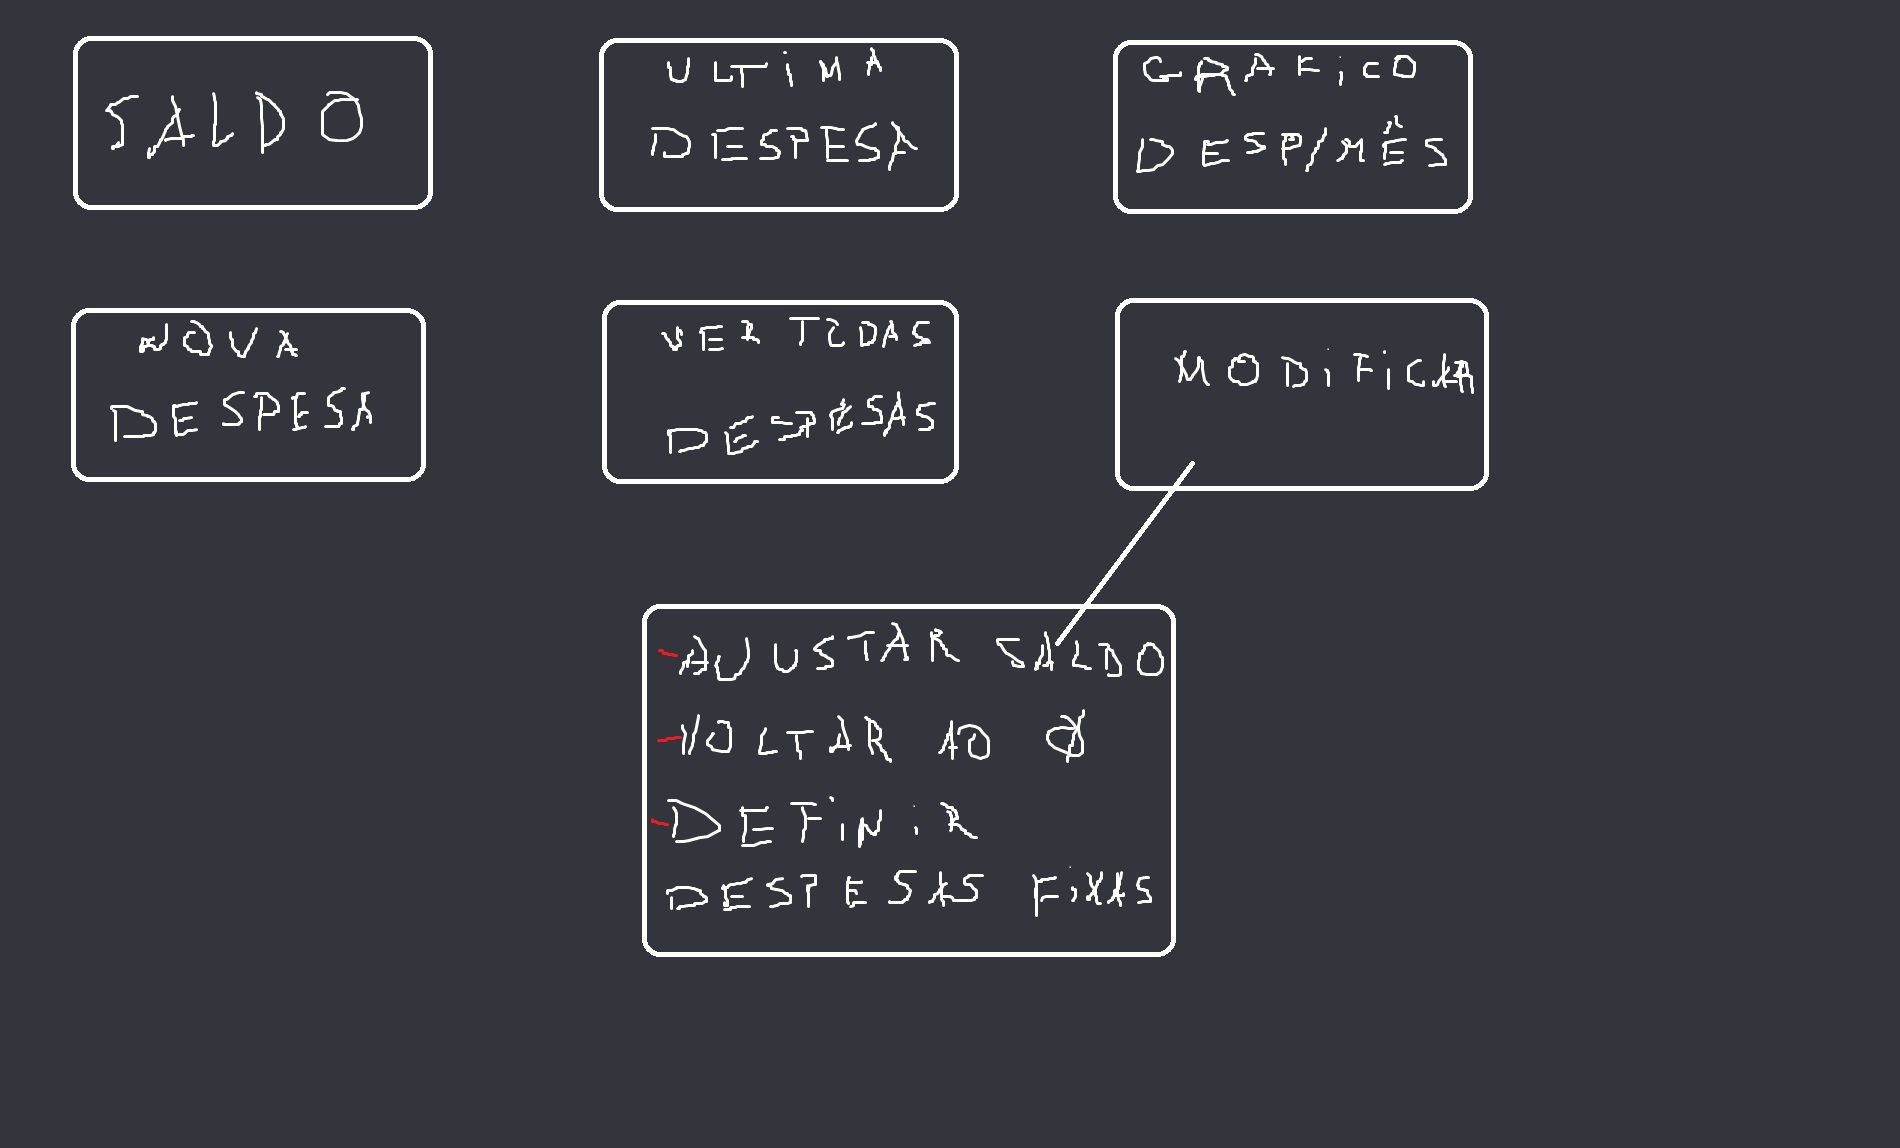 SALDO
ULTiMA
DESPESA
GRAFiCO
DESP/MÊS
NOVA
DESPESA
VER TODAS
DESPESAS
MODiFiCAR
-AJUSTAR SALDO
-VOLTAR AO 0
-DEFiNiR
DESPESAS FiXAS